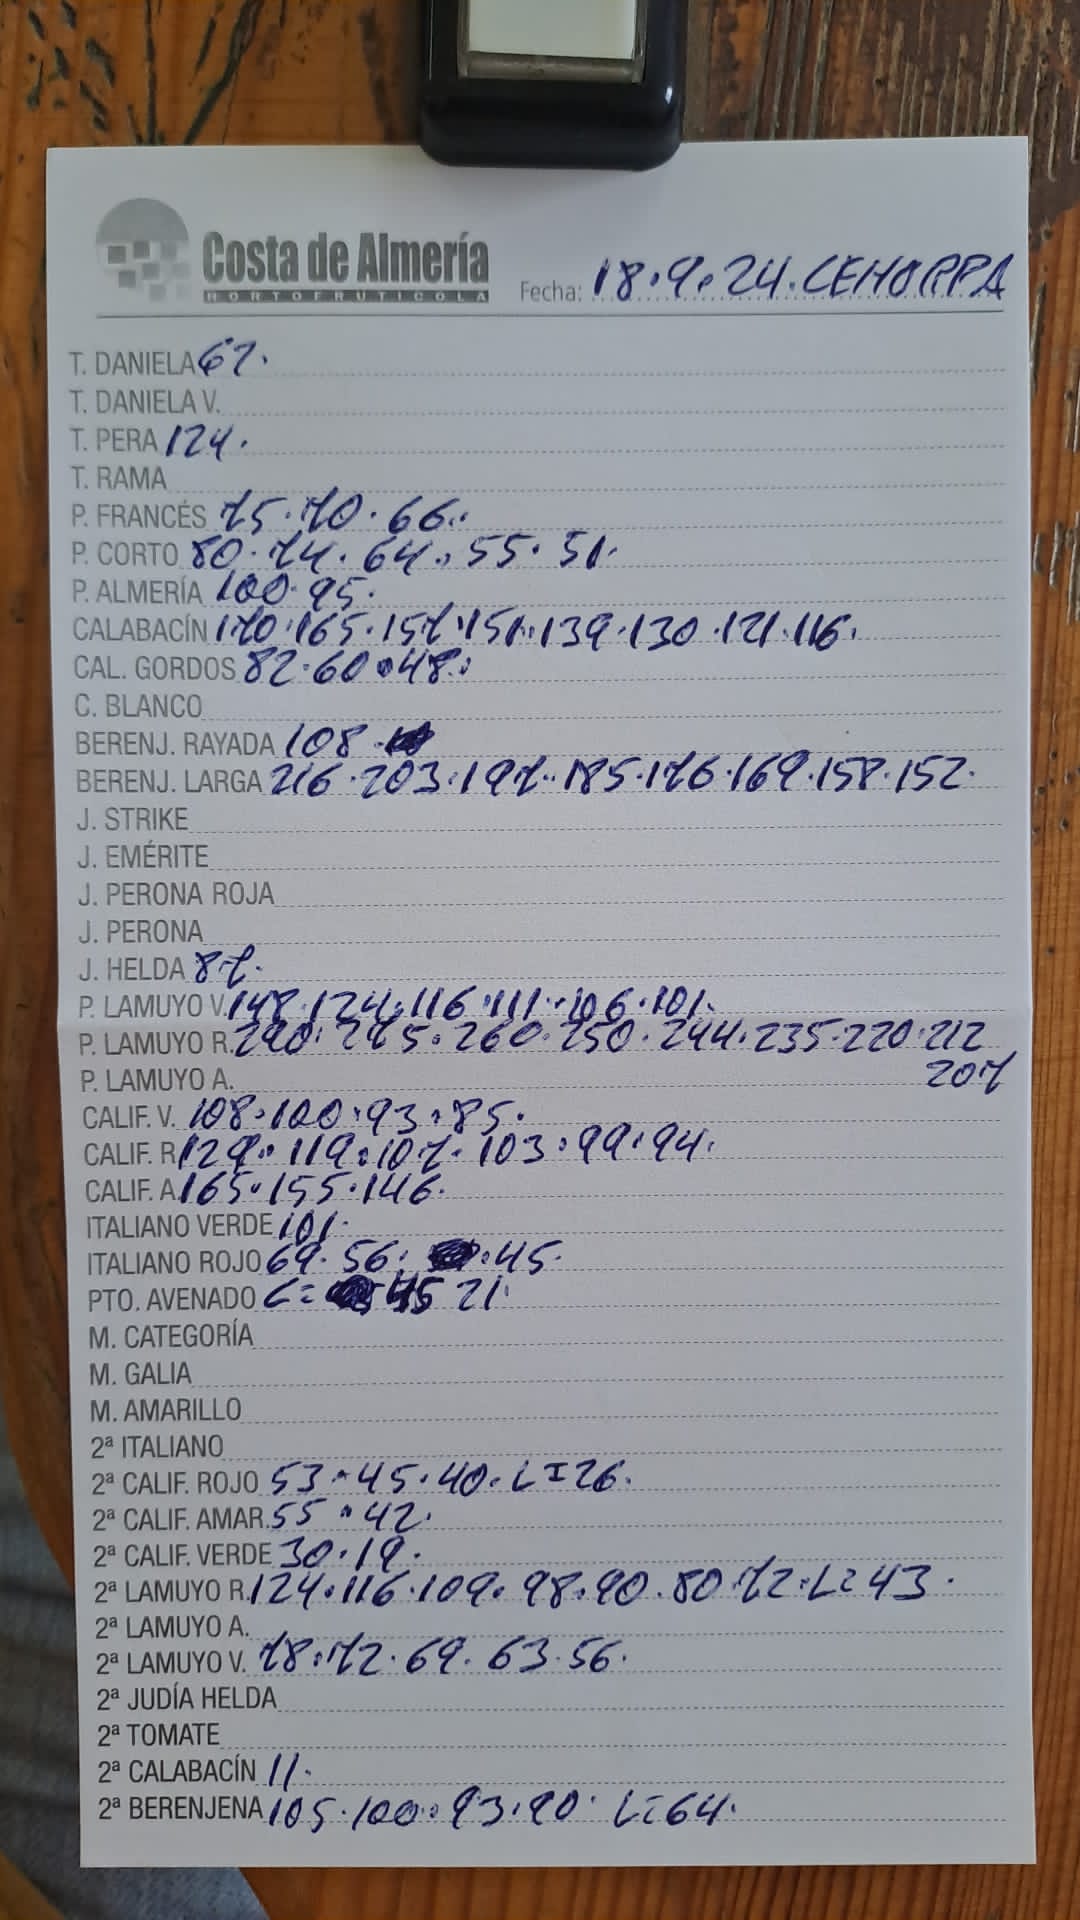 Costa de Almería
HORTOFRUTICOLA
Fecha: 18.9.24. CEHORPA
T. DANIELA 67.
T. DANIELA V.
T. PERA 124.
T. RAMA
P. FRANCÉS 75.70.66.
P. CORTO 80.74.64.55.51.
P. ALMERÍA 100.95.
CALABACÍN 170.165.157.151.139.130.121.116.
CAL. GORDOS 82.60.48.
C. BLANCO
BERENJ. RAYADA 108.
BERENJ. LARGA 216.203.197.185.176.169.158.152.
J. STRIKE
J. EMÉRITE
J. PERONA ROJA
J. PERONA
J. HELDA 87.
P. LAMUYO V. 148.124.116.111.106.101.
P. LAMUYO R. 290.275.260.250.244.235.220.212
P. LAMUYO A. 207
CALIF. V. 108.100.93.85.
CALIF. R. 129.119.107.103.99.94.
CALIF. A. 165.155.146.
ITALIANO VERDE 101.
ITALIANO ROJO 69.56. .45.
PTO. AVENADO C= 45 21.
M. CATEGORÍA
M. GALIA
M. AMARILLO
2ª ITALIANO
2ª CALIF. ROJO 53.45.40. L=26.
2ª CALIF. AMAR. 55.42.
2ª CALIF. VERDE 30.19.
2ª LAMUYO R. 124.116.109.98.90.80.72. L=43.
2ª LAMUYO A.
2ª LAMUYO V. 78.72.69.63.56.
2ª JUDÍA HELDA
2ª TOMATE
2ª CALABACÍN 11.
2ª BERENJENA 105.100.93.90. L=64.